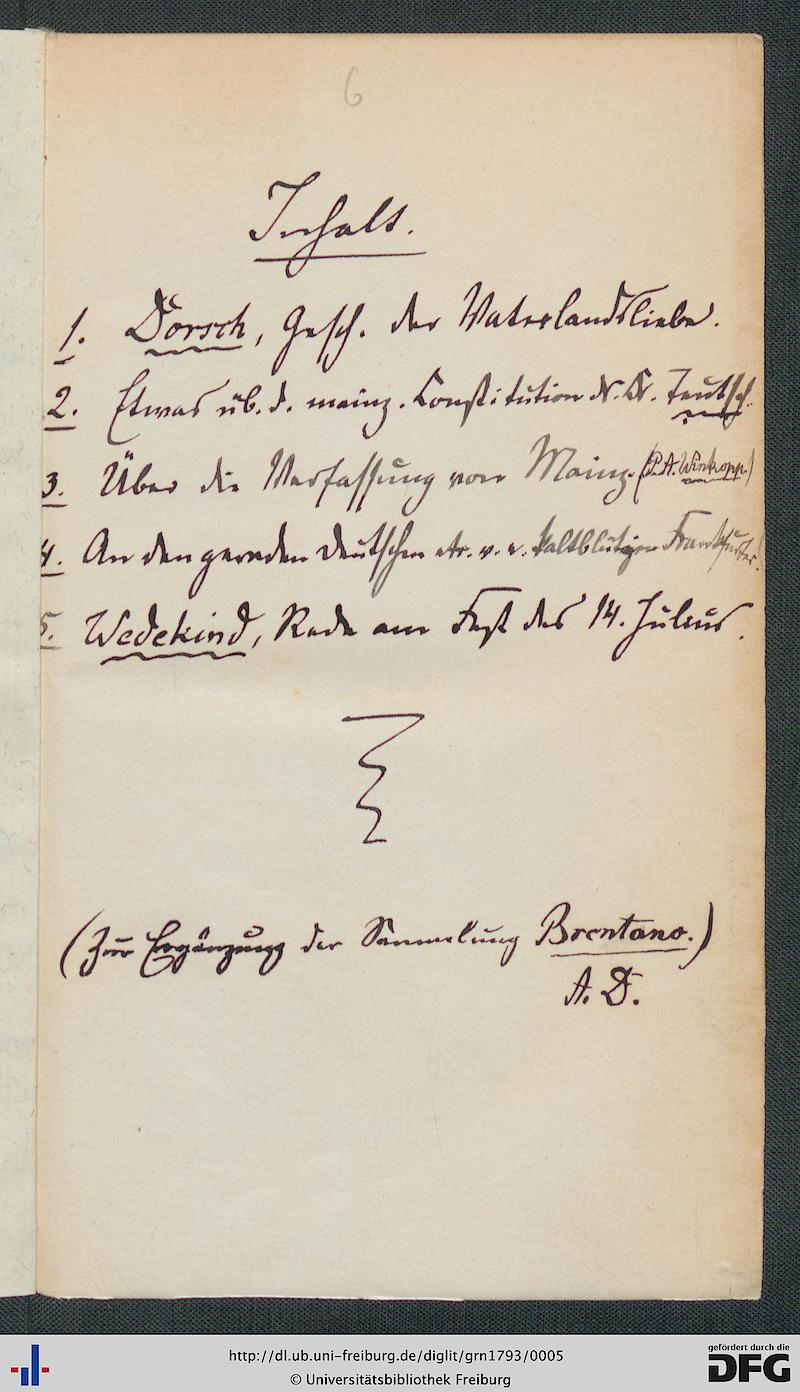 6
Inhalt.
1. Dorsch, Gesch. der Vaterlandsliebe.
2. Etwas üb. d. mainz. Constitution v. Teutsch.
3. Über die Verfassung von Mainz. (P. A. Winkopp.)
4. An den geraden Deutschen etc. v. e. kaltblütigen Frankfurter.
5. Wedekind, Rede am Fest des 14. Julius.
(Zur Ergänzung der Sammlung Brentano.)
A. D.
http://dl.ub.uni-freiburg.de/diglit/grn1793/0005
© Universitätsbibliothek Freiburg
gefördert durch die
DFG